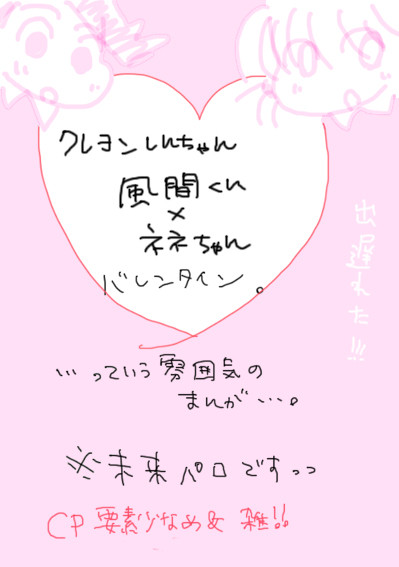 クレヨンしんちゃん
風間くん
×
ネネちゃん
バレンタイン。
出遅れた!!!
…っていう雰囲気の
まんが…。
※未来パロですっっ
CP要素少なめ& 雑!!